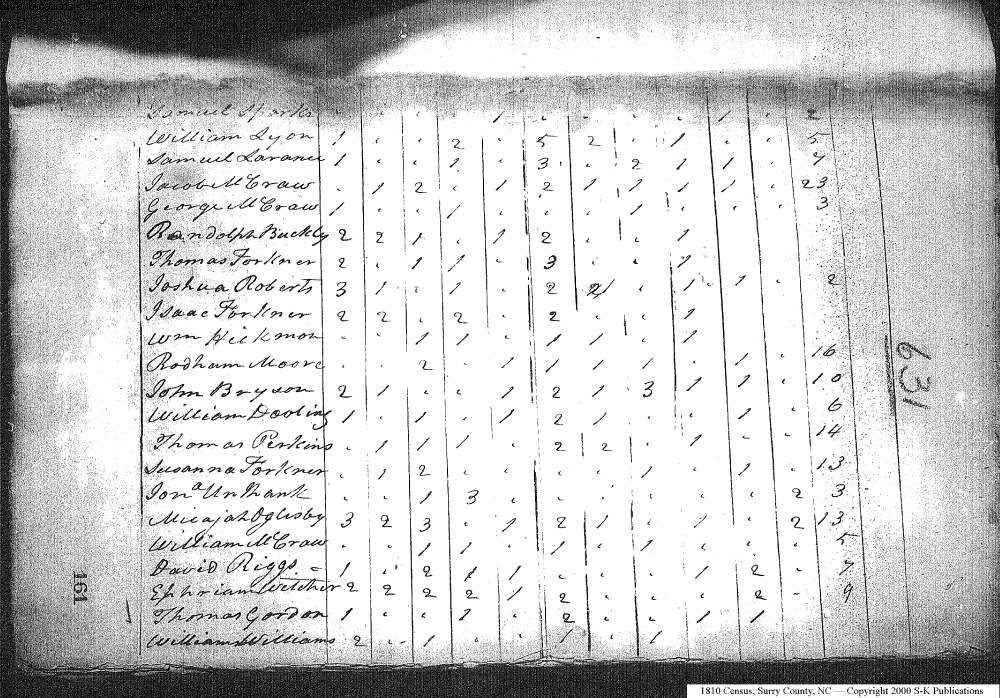 Samuel Sparks . . . . 1 . . . . 1 . 2
William Lyon 1 . . 2 . 5 2 . 1 . . 5
Samuel Laranee 1 . . 1 . 3 . 2 1 1 . 7
Jacob McCraw . 1 2 . 1 2 1 1 1 1 . 23
George McCraw 1 . . 1 . . . 1 . . . 3
Randolph Buckly 2 2 1 . 1 2 . . 1
Thomas Forkner 2 . 1 1 . 3 . . 1
Joshua Roberts 3 1 . 1 . 2 . 1 . 1 . 2
Isaac Forkner 2 2 . 2 . 2 . . 1
Wm Hickmon . . 1 1 . 1 1 . 1
Rodham Moore . . 2 . 1 1 1 1 . 1 . 16
John Bryson 2 1 . . 1 2 1 3 1 1 . 10
William Dooling 1 . 1 . 1 2 1 . . 1 . 6
Thomas Perkins . 1 1 1 . 2 2 . 1 . . 14
Susanna Forkner . 1 2 . . . . 1 . 1 . 13
Jona Unthank . . 1 3 . . . . . . 2 3
Micajah Oglesby 3 2 3 . 1 2 1 . 1 . 2 13
William McCraw . . 1 1 . 1 . 1 1 . . 5
David Riggs 1 . 2 1 1 . . . 1 2 . 7
Ephriam Witcher 2 2 2 2 1 2 . . . 2 - 9
Thomas Gordon 1 . . 1 . 2 . . 1 1
William Williams 2 . 1 . . 1 . 1
631
161
1810 Census, Surry County, NC — Copyright 2000 S-K Publications